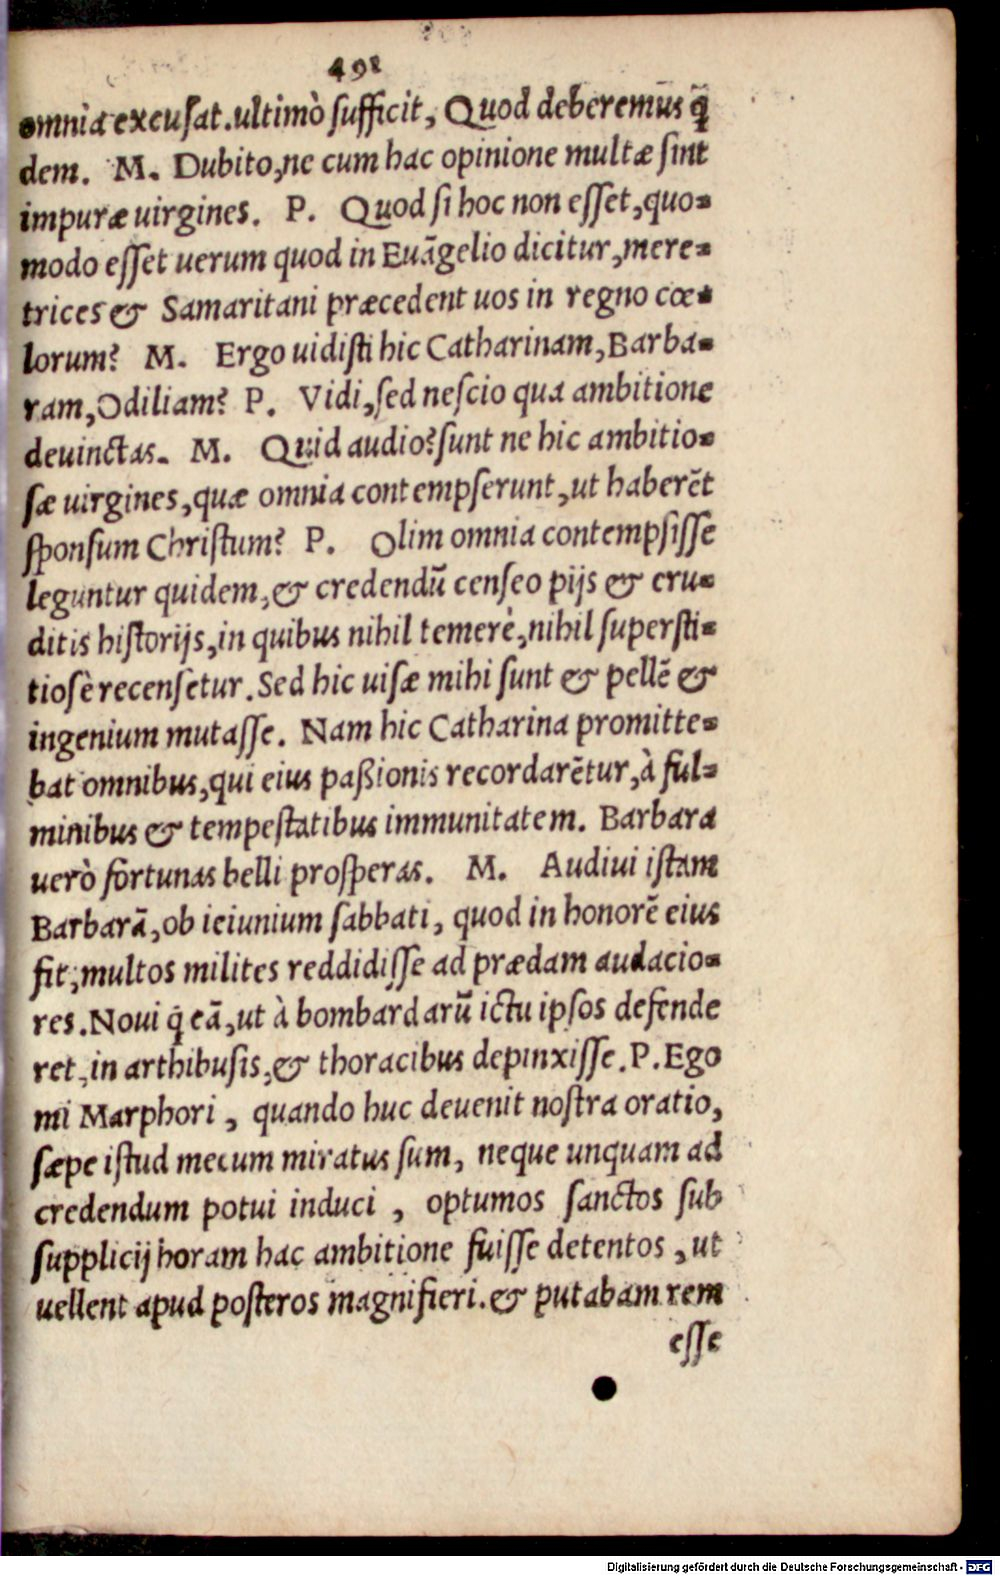 491
omnia excusat. ultimò sufficit, Quod deberemus q̃
dem. M. Dubito, ne cum hac opinione multæ sint
impuræ uirgines. P. Quod si hoc non esset, quo=
modo esset uerum quod in Euãgelio dicitur, mere=
trices & Samaritani præcedent uos in regno cœ=
lorum? M. Ergo uidisti hic Catharinam, Barba=
ram, Odiliam? P. Vidi, sed nescio qua ambitione
deuinctas. M. Quid audio? sunt ne hic ambitio=
sæ uirgines, quæ omnia contempserunt, ut haberẽt
sponsum Christum? P. Olim omnia contempsisse
leguntur quidem, & credendũ censeo pijs & eru=
ditis historijs, in quibus nihil temerè, nihil supersti=
tiosè recensetur. Sed hic uisæ mihi sunt & pellẽ &
ingenium mutasse. Nam hic Catharina promitte=
bat omnibus, qui eius paßionis recordarẽtur, à ful=
minibus & tempestatibus immunitatem. Barbara
uerò fortunas belli prosperas. M. Audiui istam
Barbarã, ob ieiunium sabbati, quod in honorẽ eius
fit, multos milites reddidisse ad prædam audacio=
res. Noui q̃ eã, ut à bombardarũ ictu ipsos defende
ret, in arthibusis, & thoracibus depinxisse. P. Ego
mi Marphori, quando huc deuenit nostra oratio,
sæpe istud mecum miratus sum, neque unquam ad
credendum potui induci, optumos sanctos sub
supplicij horam hac ambitione fuisse detentos, ut
uellent apud posteros magnifieri. & putabam rem
esse
Digitalisierung gefördert durch die Deutsche Forschungsgemeinschaft - DFG